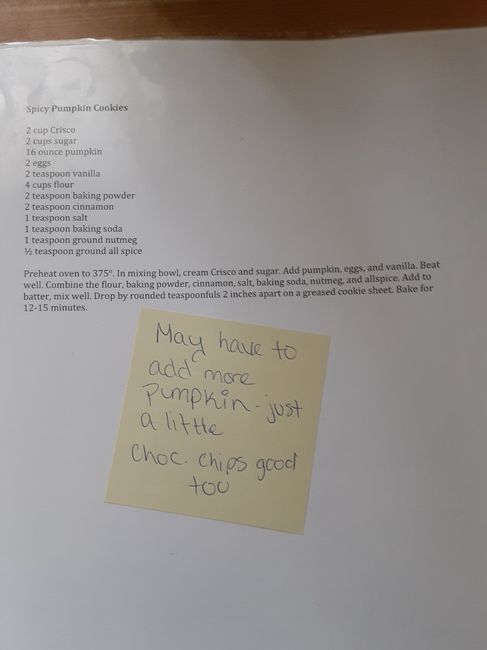 Spicy Pumpkin Cookies
2 cup Crisco
2 cups sugar
16 ounce pumpkin
2 eggs
2 teaspoon vanilla
4 cups flour
2 teaspoon baking powder
2 teaspoon cinnamon
1 teaspoon salt
1 teaspoon baking soda
1 teaspoon ground nutmeg
½ teaspoon ground all spice
Preheat oven to 375°. In mixing bowl, cream Crisco and sugar. Add pumpkin, eggs, and vanilla. Beat
well. Combine the flour, baking powder, cinnamon, salt, baking soda, nutmeg, and allspice. Add to
batter, mix well. Drop by rounded teaspoonfuls 2 inches apart on a greased cookie sheet. Bake for
12-15 minutes.
May have to
add more
Pumpkin - just
a little
Choc. chips good
too